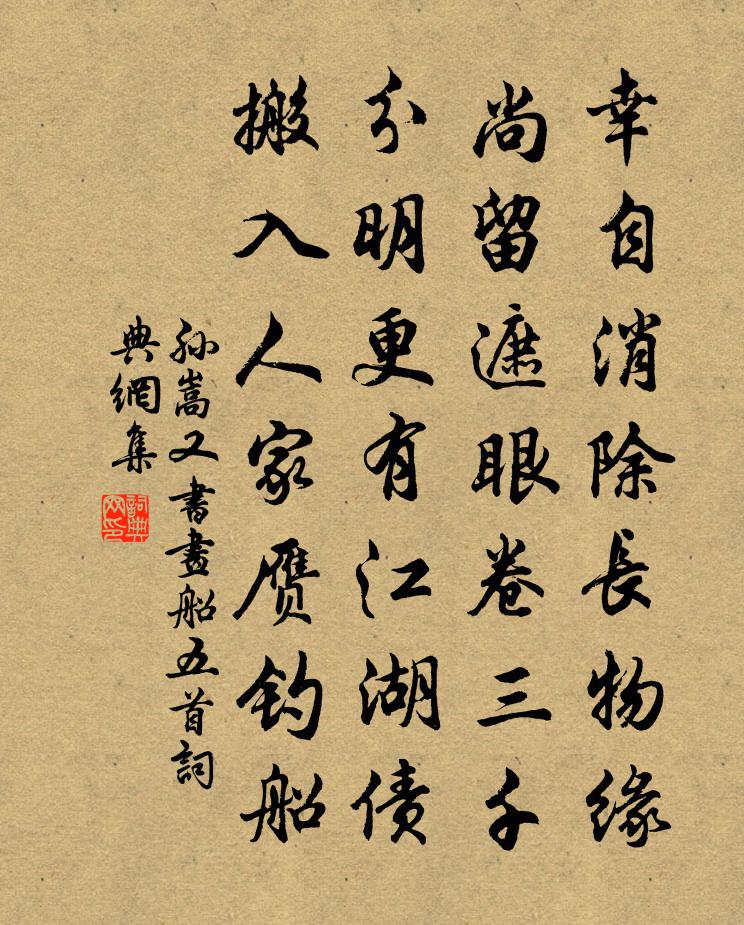 幸自消除長物緣
尚留遮眼卷三千
分明更有江湖債
搬入人家贋钓船
孫嵩又書畫船五首詞
典網集
詞典
网印